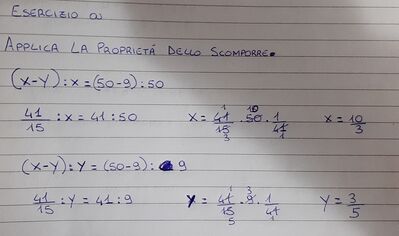 ESERCIZIO a)
APPLICA LA PROPRIETÀ DELLO SCOMPORRE.
(X-Y):X=(50-9):50
41/15 : X = 41 : 50 X = 41/15 · 50 · 1/41 X = 10/3
(X-Y):Y=(50-9): 9
41/15 : Y = 41 : 9 Y = 41/15 · 9 · 1/41 Y = 3/5